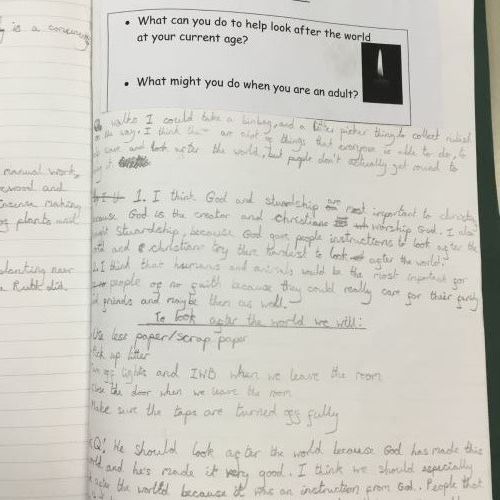 y is a
• What can you do to help look after the world
at your current age?
• What might you do when you are an adult?
walks I could take a binbag, and a litter picker thing to collect rubbish
on the way. I think there are alot of things that everyone is able to do, to
and look after the world, but people don't actually get round to
it
manual work,
and
incense making
plants and
planting near
Ruth did.
1. I think God and stewardship are most important to christians
because God is the creator and christians worship God. I also
stewardship, because God gave people instructions to look after the
and christians try there hardest to look after the world.
I think that humans and animals would be the most important for
people of no faith because they could really care for their family
friends and maybe them as well.
To look after the world we will:
Use less paper/scrap paper
Pick up litter
Turn off lights and IWB when we leave the room
Close the door when we leave the room
Make sure the taps are turned off fully
Q: He should look after the world because God has made this
world and he's made it very good. I think we should especially
after the world because it was an instruction from God. People that